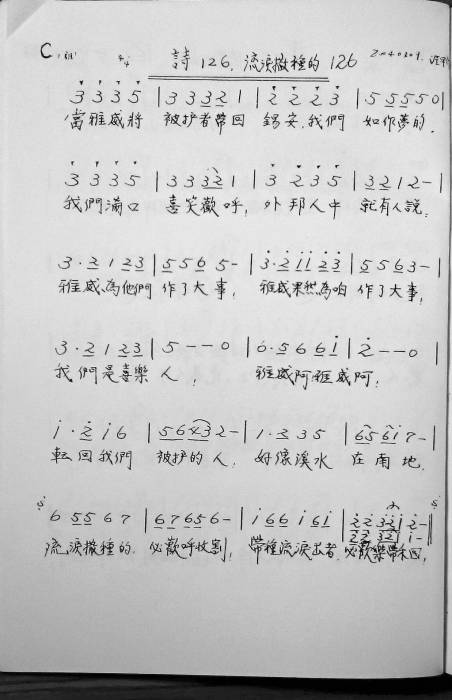 C 調 4/4 詩126. 流淚撒種的 126
3 3 3 5 | 3 3 3 2 1 | 2 2 2 3 | 5 5 5 5 0 |
當雅威將 被掳者帶回 錫安,我們 如作夢的.
3 3 3 5 | 3 3 3 2 1 | 3 2 3 5 | 3 2 1 2 - |
我們滿口 喜笑歡呼, 外邦人中 就有人說:
3 · 2 1 2 3 | 5 5 6 5 - | 3 · 2 1 1 2 3 | 5 5 6 3 - |
雅威為他們 作了大事, 雅威果然為咱 作了大事,
3 · 2 1 2 3 | 5 - - 0 | 0 · 5 6 6 i | 2 - - 0 |
我們是喜樂 人, 雅威阿,雅威阿,
i · 2 i 6 | 5 6 4 3 2 - | 1 · 2 3 5 | 6 5 6 i 7 - |
転回我們 被掳的人, 好像溪水 在南地.
6 5 5 6 7 | 6 7 6 5 6 - | i 6 6 i 6 i | 2 2 3 2 i 2 - ||
2 2 3 2 i i -
流淚撒種的, 必歡呼收割, 帶種流淚出者, 必歡樂帶禾回,